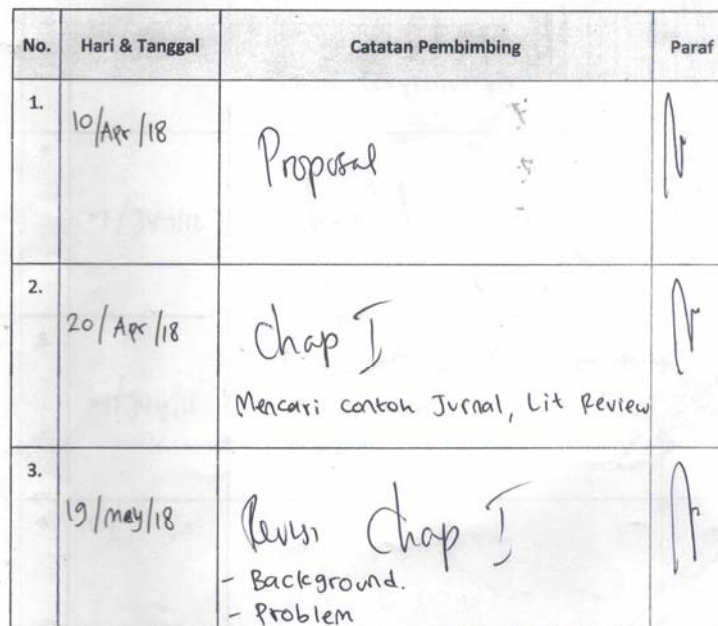 No. Hari & Tanggal Catatan Pembimbing Paraf
1.
10/Apr/18 Proposal
2.
20/Apr/18 Chap I
Mencari contoh Jurnal, Lit Review
3.
19/may/18 Revisi Chap I
- Background.
- Problem